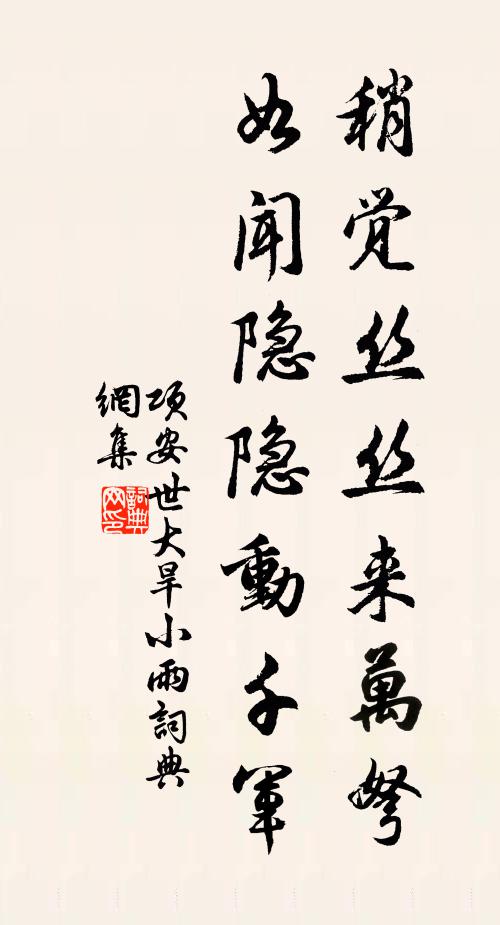 稍觉丝丝来萬弩
如闻隐隐動千軍
项安世大旱小雨詞典
網集
詞典网印